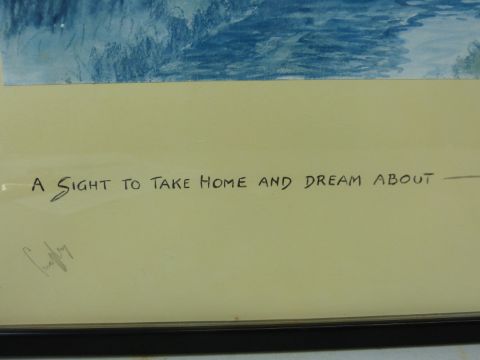 A SIGHT TO TAKE HOME AND DREAM ABOUT —